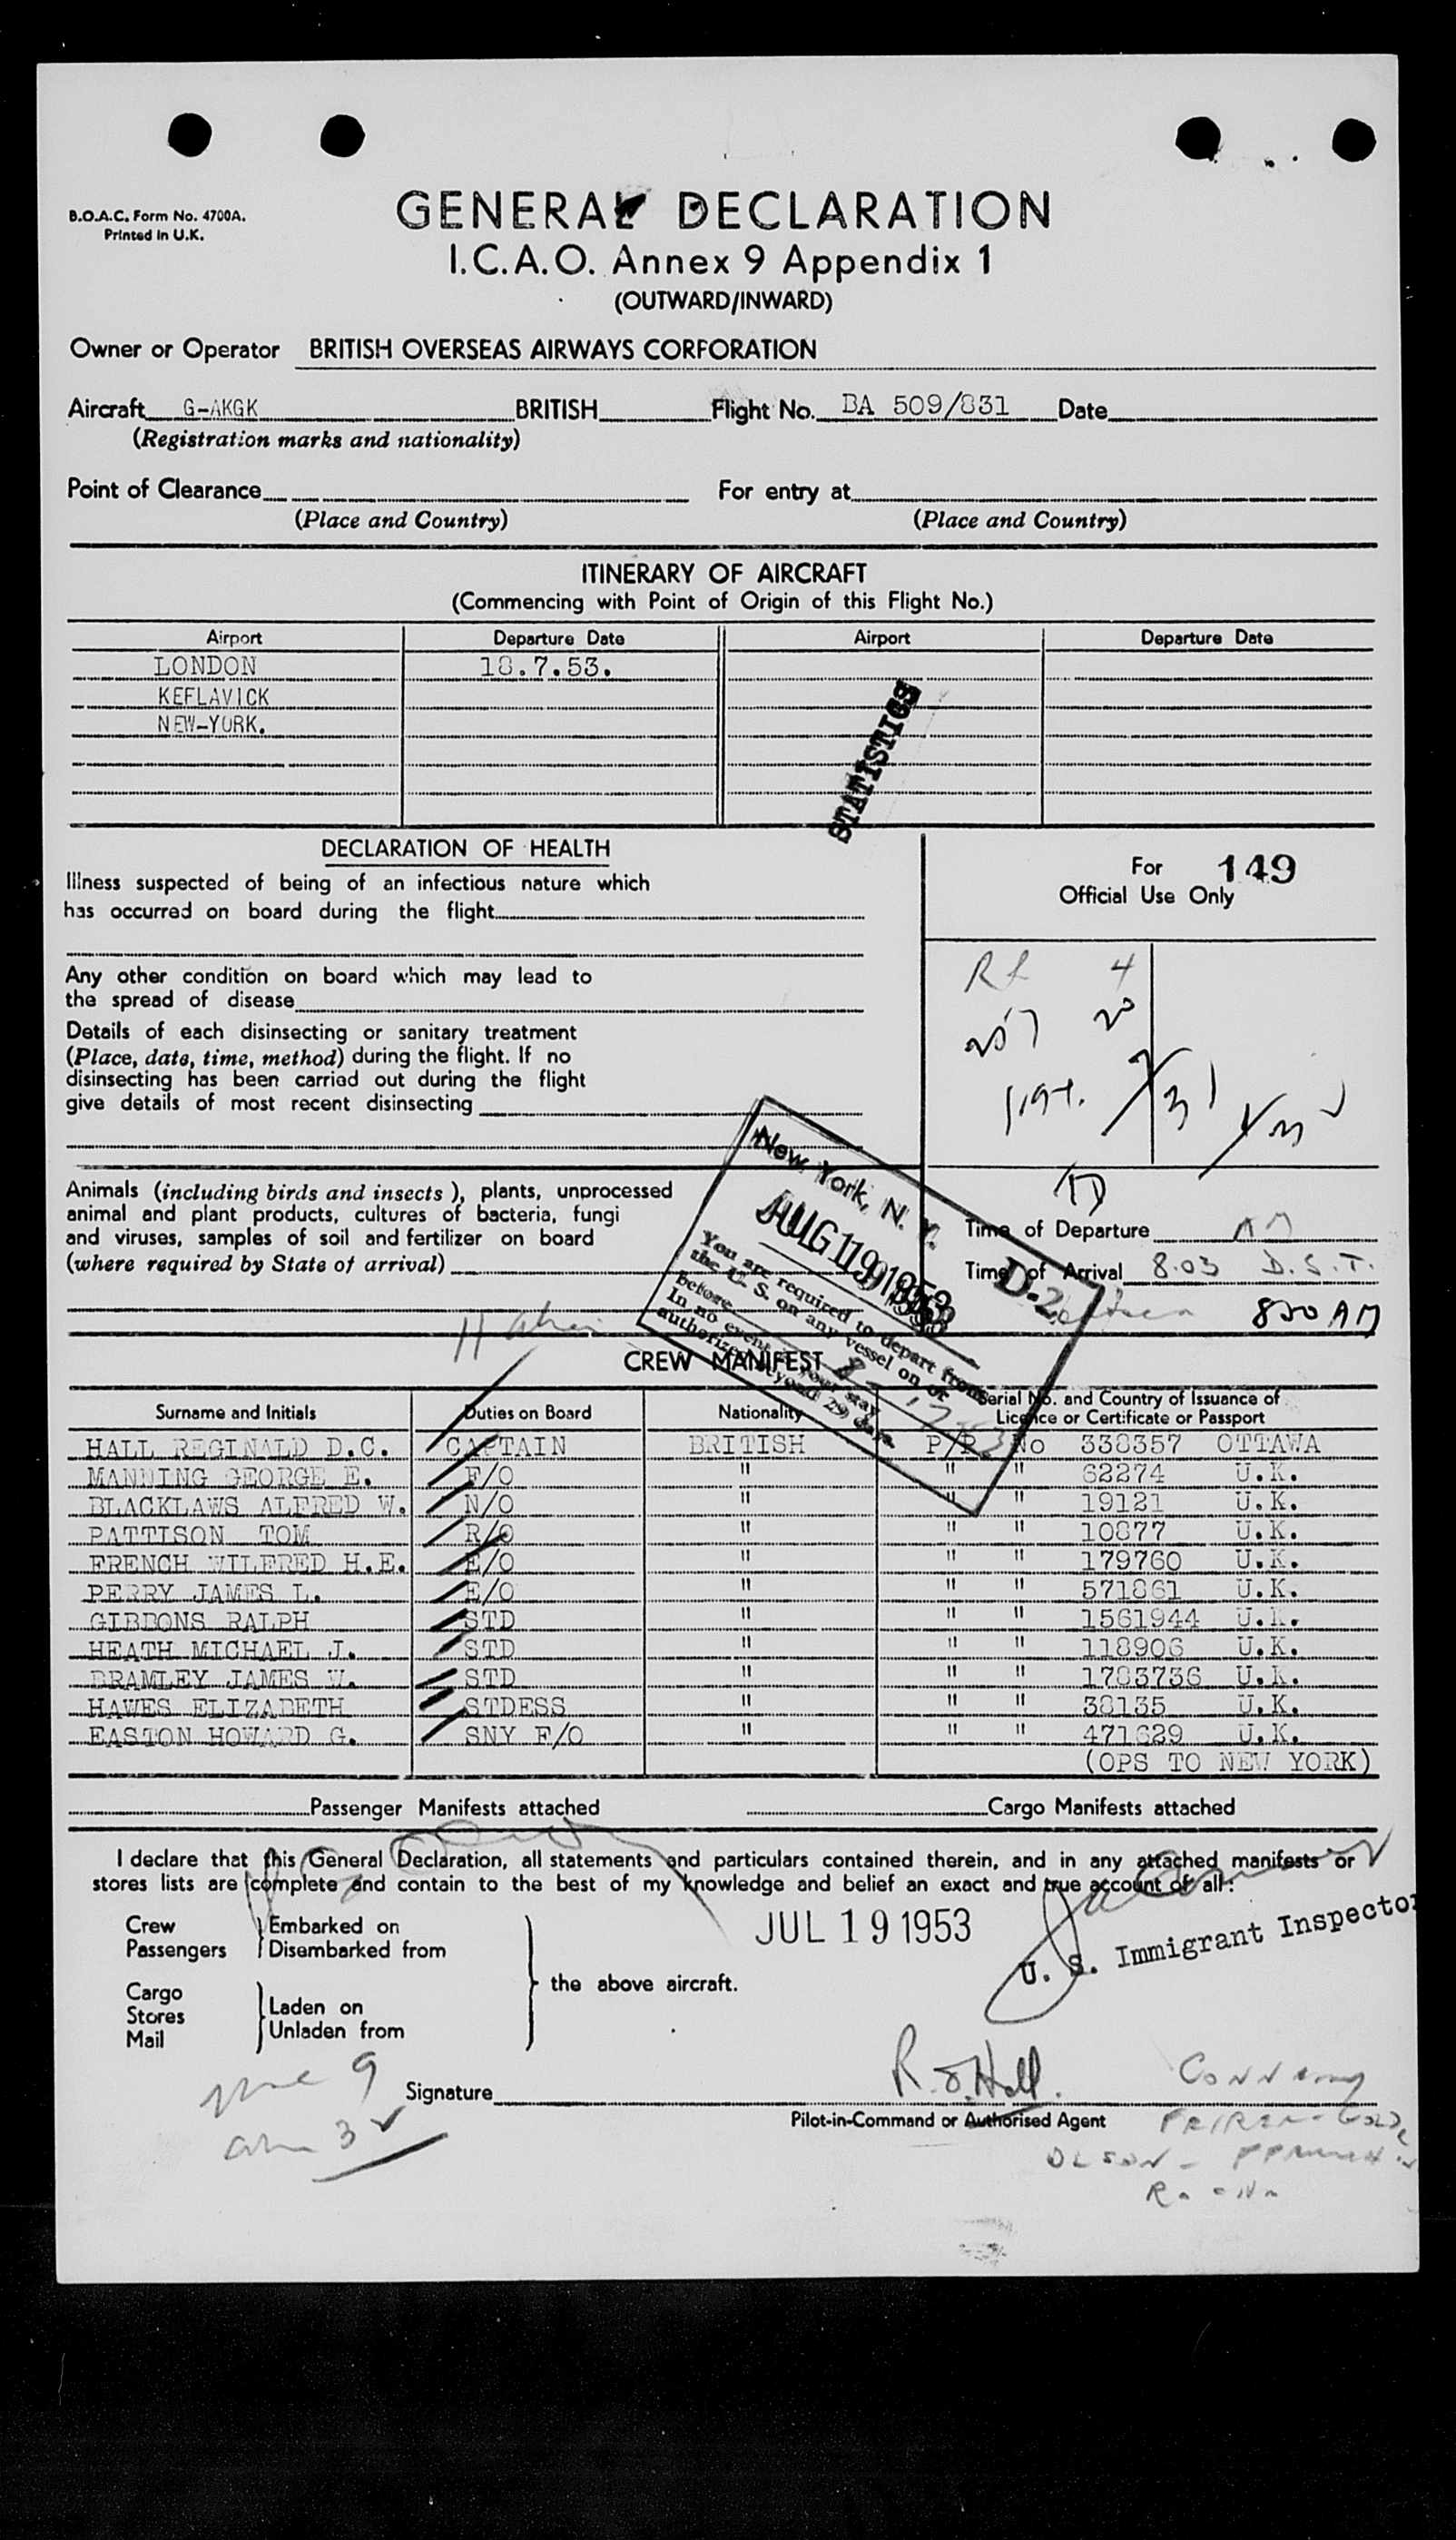 B.O.A.C. Form No. 4700A.
Printed in U.K.
GENERAL DECLARATION
I.C.A.O. Annex 9 Appendix 1
(OUTWARD/INWARD)
Owner or Operator BRITISH OVERSEAS AIRWAYS CORPORATION
Aircraft G-AKGK BRITISH Flight No. BA 509/831 Date
(Registration marks and nationality)
Point of Clearance For entry at
(Place and Country) (Place and Country)
ITINERARY OF AIRCRAFT
(Commencing with Point of Origin of this Flight No.)
Airport Departure Date Airport Departure Date
LONDON 18.7.53.
KEFLAVICK
NEW-YORK.
STATISTICS
DECLARATION OF HEALTH
Illness suspected of being of an infectious nature which
has occurred on board during the flight
Any other condition on board which may lead to
the spread of disease
Details of each disinsecting or sanitary treatment
(Place, date, time, method) during the flight. If no
disinsecting has been carried out during the flight
give details of most recent disinsecting
For 149
Official Use Only
4
20
Animals (including birds and insects), plants, unprocessed
animal and plant products, cultures of bacteria, fungi
and viruses, samples of soil and fertilizer on board
(where required by State of arrival)
Time of Departure
Time of Arrival 8.03 D.S.T.
850 AM
New York, N. Y.
1953
D-2
You are required to depart from
the U. S. on any vessel on or
before
In no event your stay
authorized beyond 29 days
CREW MANIFEST
Surname and Initials Duties on Board Nationality Serial No. and Country of Issuance of
Licence or Certificate or Passport
HALL REGINALD D.C. CAPTAIN BRITISH P/P No 338357 OTTAWA
MANNING GEORGE E. F/O " " " 62274 U.K.
BLACKLAWS ALFRED W. N/O " " " 19121 U.K.
PATTISON TOM R/O " " " 10877 U.K.
FRENCH WILFRED H.E. E/O " " " 179760 U.K.
PERRY JAMES L. E/O " " " 571861 U.K.
GIBBONS RALPH STD " " " 1561944 U.K.
HEATH MICHAEL J. STD " " " 118906 U.K.
BRAMLEY JAMES W. STD " " " 1783736 U.K.
HAWES ELIZABETH STDESS " " " 38135 U.K.
EASTON HOWARD G. SNY F/O " " " 471629 U.K.
(OPS TO NEW YORK)
Passenger Manifests attached Cargo Manifests attached
I declare that this General Declaration, all statements and particulars contained therein, and in any attached manifests or
stores lists are complete and contain to the best of my knowledge and belief an exact and true account of all:
Crew Embarked on
Passengers Disembarked from
JUL 19 1953
U. S. Immigrant Inspector
the above aircraft.
Cargo
Stores Laden on
Mail Unladen from
9
3
Signature
Pilot-in-Command or Authorised Agent
OLSON